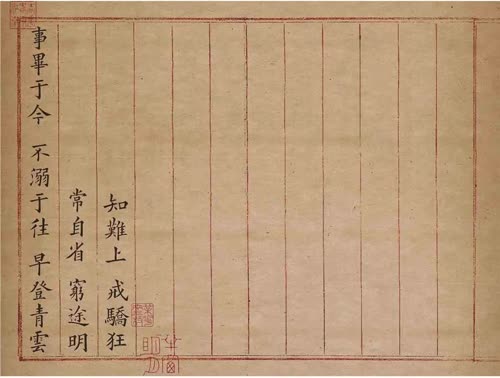 知難上 戒驕狂
常自省 窮途明
事畢于今 不溺于往 早登青雲